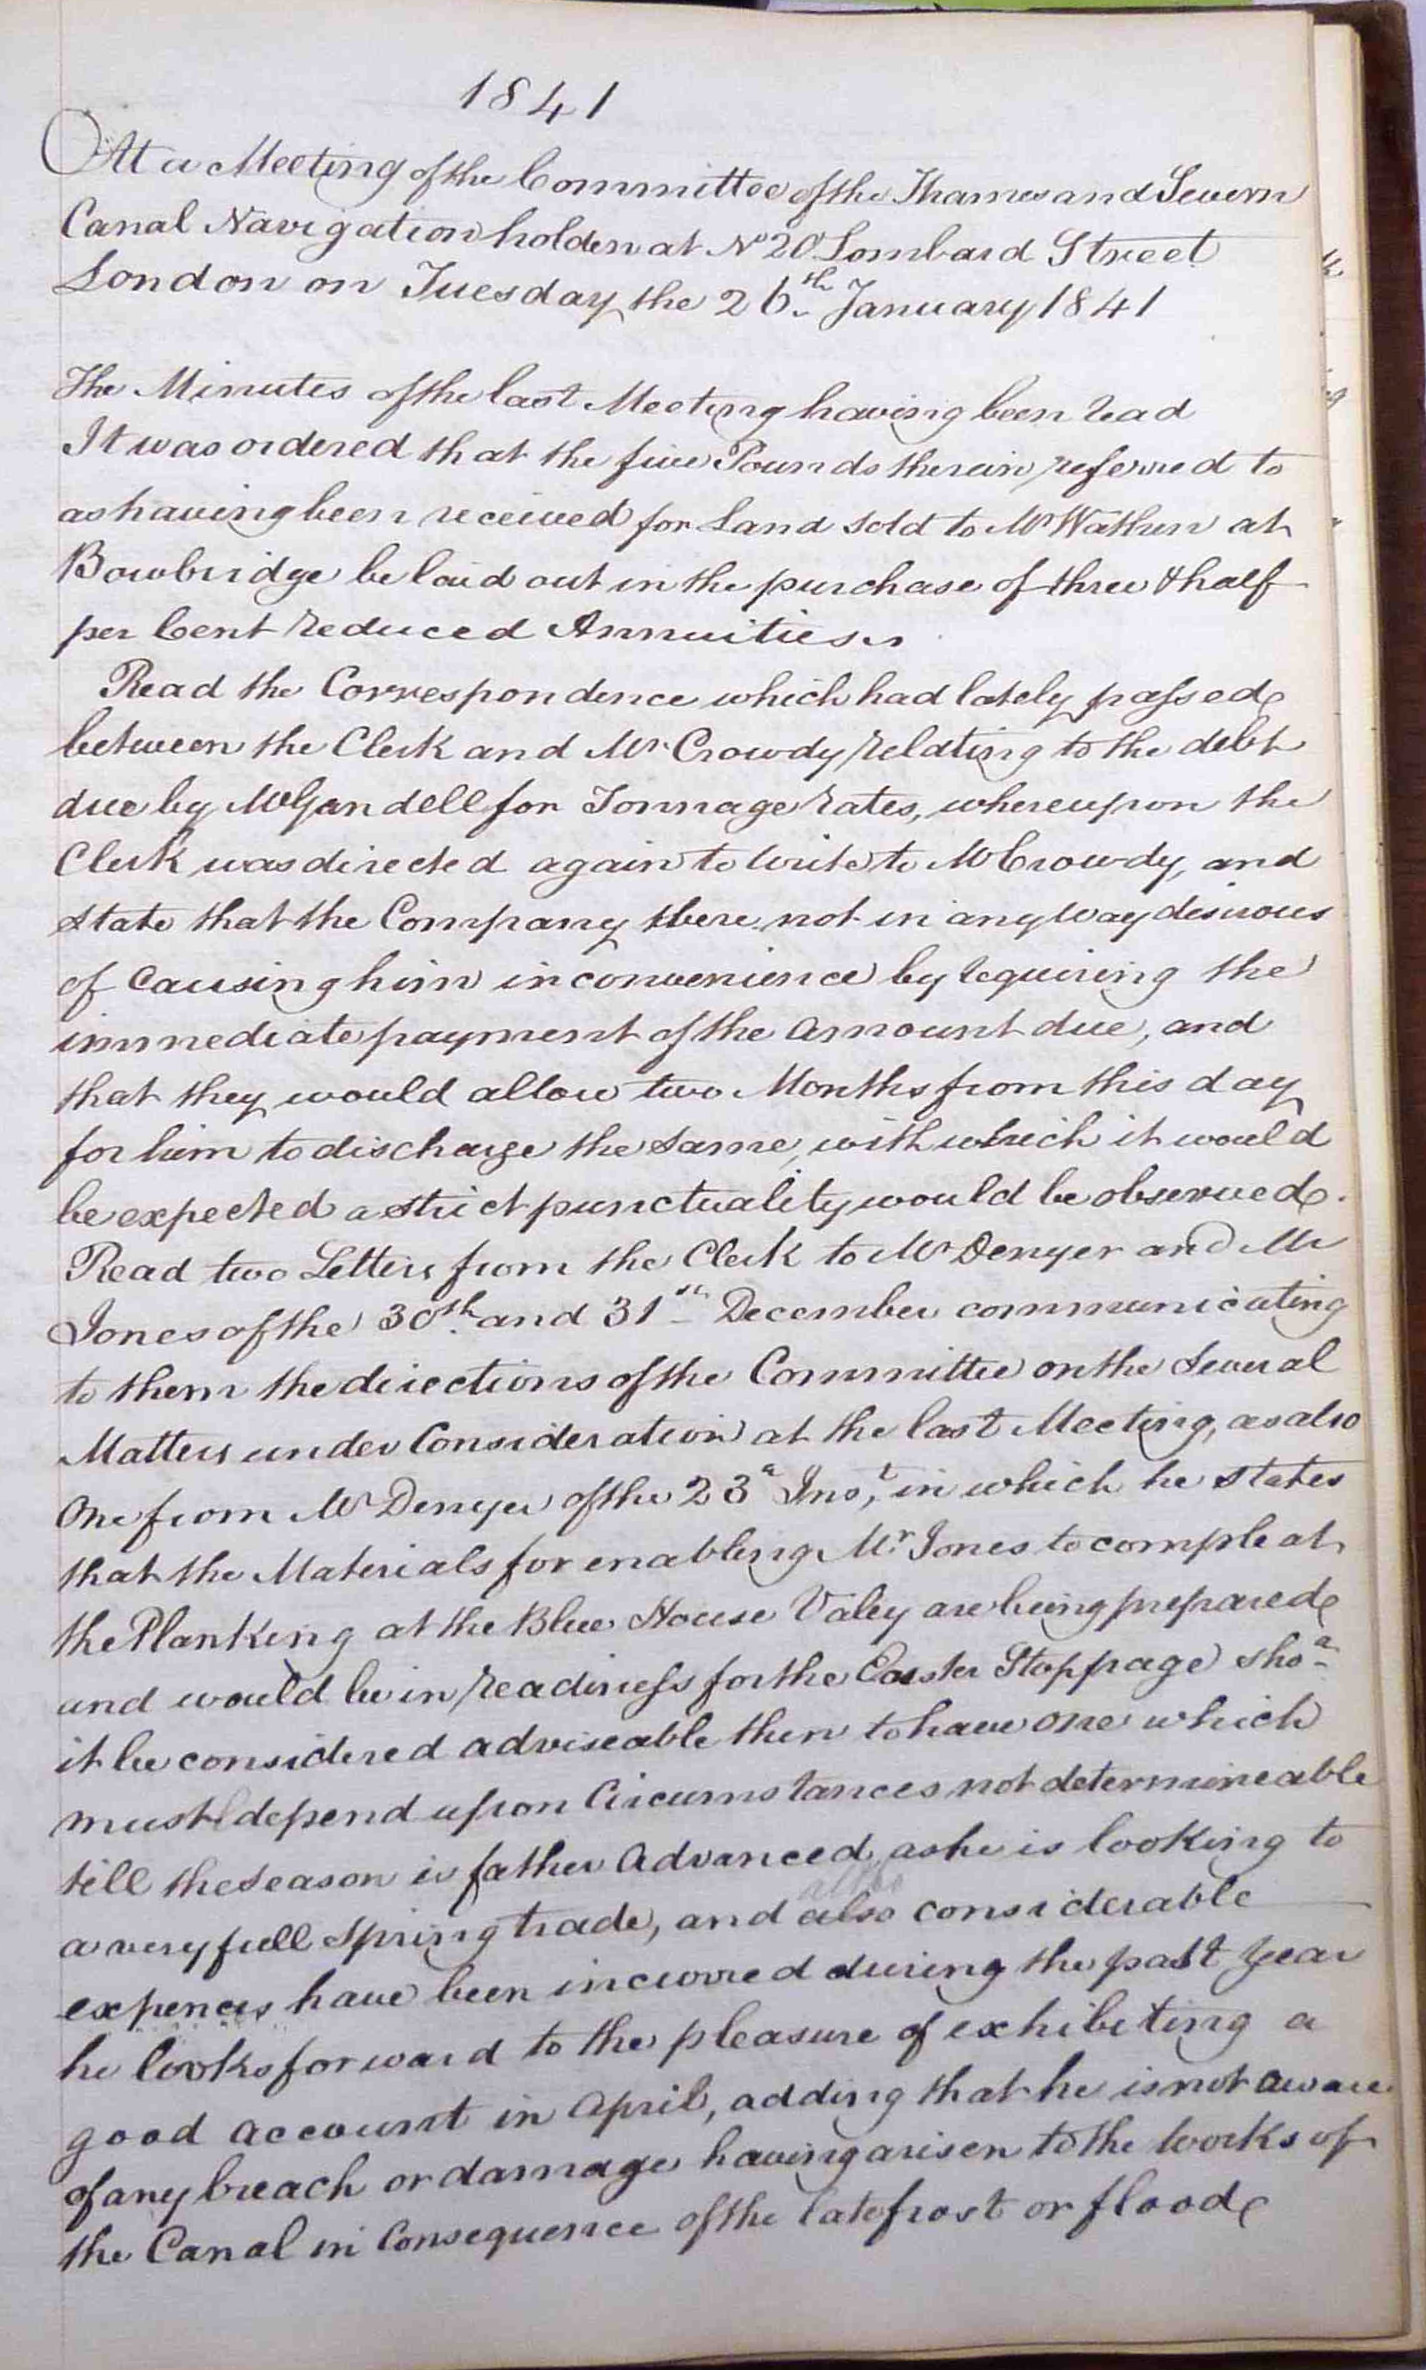 1841
At a Meeting of the Committee of the Thames and Severn
Canal Navigation holden at No 20 Lombard Street
London on Tuesday the 26th January 1841
The Minutes of the last Meeting having been read
It was ordered that the five Pounds therein referred to
as having been received for Land sold to Mr Wathen at
Bowbridge be laid out in the purchase of three & half
per Cent reduced Annuities.
Read the Correspondence which had lately passed
between the Clerk and Mr Crowdy relating to the debt
due by Mr Gandell for Tonnage rates, whereupon the
Clerk was directed again to write to Mr Crowdy, and
state that the Company were not in any way desirous
of causing him inconvenience by requiring the
immediate payment of the amount due, and
that they would allow two Months from this day
for him to discharge the same, with which it would
be expected a strict punctuality would be observed.
Read two Letters from the Clerk to Mr Denyer and Mr
Jones of the 30th and 31st December communicating
to them the directions of the Committee on the several
Matters under Consideration at the last Meeting, as also
One from Mr Denyer of the 23d Inst, in which he states
that the Materials for enabling Mr Jones to compleat
the Planking at the Blue House Valley are being prepared
and would be in readiness for the Easter Stoppage shod
it be considered adviseable then to have one which
must depend upon Circumstances not determineable
till the season is father Advanced, as he is looking to
altho
a very full Spring trade, and also considerable
expences have been incurred during the past year
he looks forward to the pleasure of exhibiting a
good account in April, adding that he is not aware
of any breach or damage having arisen to the works of
the Canal in Consequence of the late frost or flood